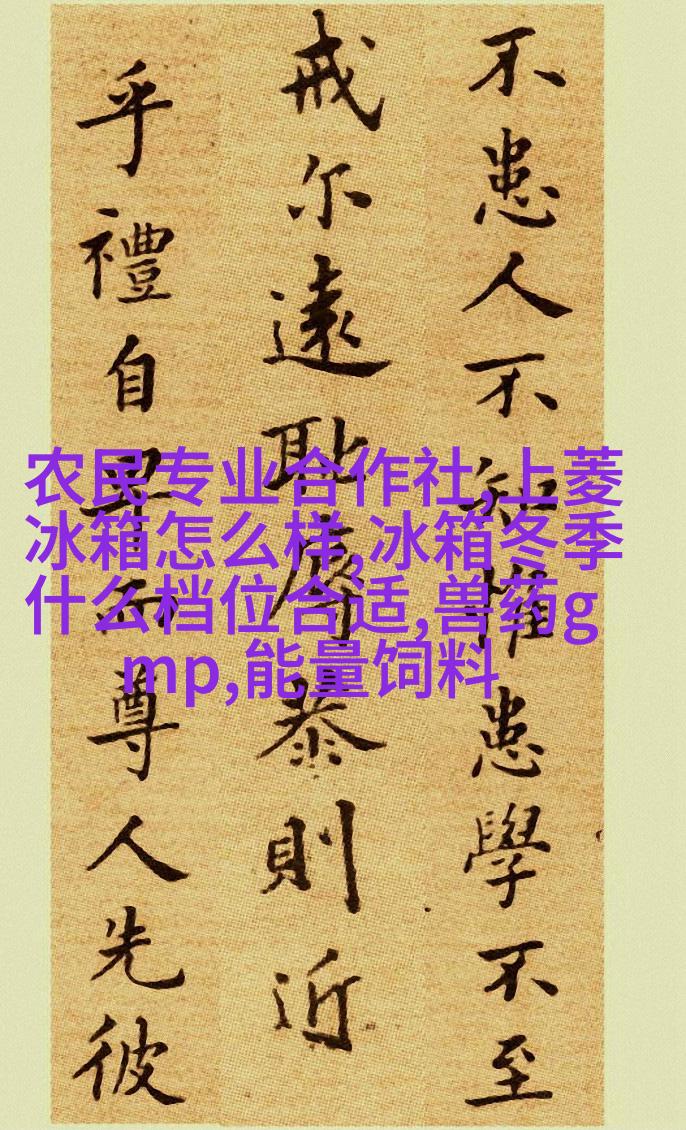 不患人不知惟患學不至
戒尔遠耻辱恭則近
乎禮自卑而尊人先彼
农民专业合作社,上菱
冰箱怎么样,冰箱冬季
什么档位合适,兽药g
mp,能量饲料